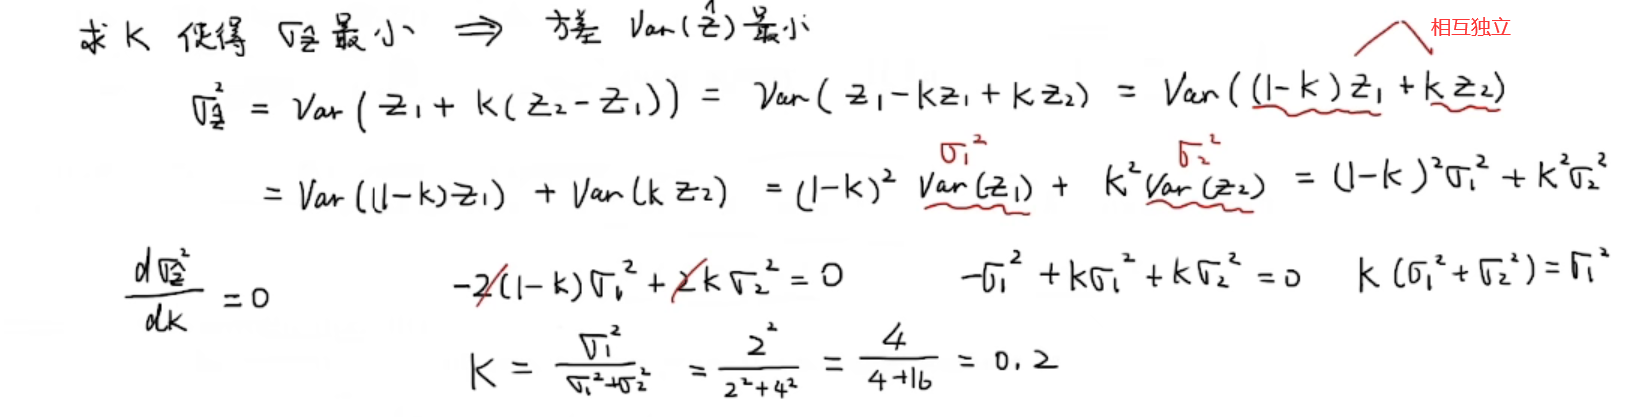 相互独立
求 K 使得 σẑ 最小 ⇒ 方差 Var(ẑ) 最小
σẑ² = Var(z₁ + k(z₂-z₁)) = Var(z₁-kz₁+kz₂) = Var((1-k)z₁+kz₂)
σ₁² σ₂²
= Var((1-k)z₁) + Var(kz₂) = (1-k)² Var(z₁) + k² Var(z₂) = (1-k)²σ₁² + k²σ₂²
dσẑ²/dk = 0 -2(1-k)σ₁² + 2kσ₂² = 0 -σ₁² + kσ₁² + kσ₂² = 0 k(σ₁²+σ₂²) = σ₁²
K = σ₁²/(σ₁²+σ₂²) = 2²/(2²+4²) = 4/(4+16) = 0.2